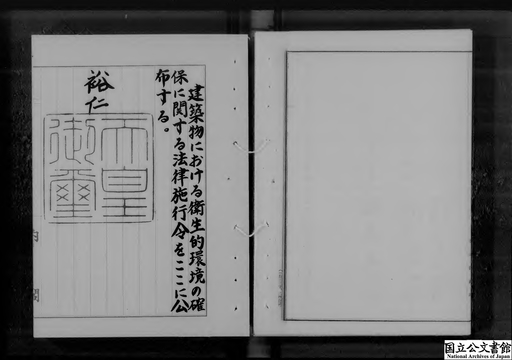 建築物における衛生的環境の確
保に関する法律施行令をここに公
布する。
裕仁
天皇
御璽
内閣
国立公文書館
National Archives of Japan